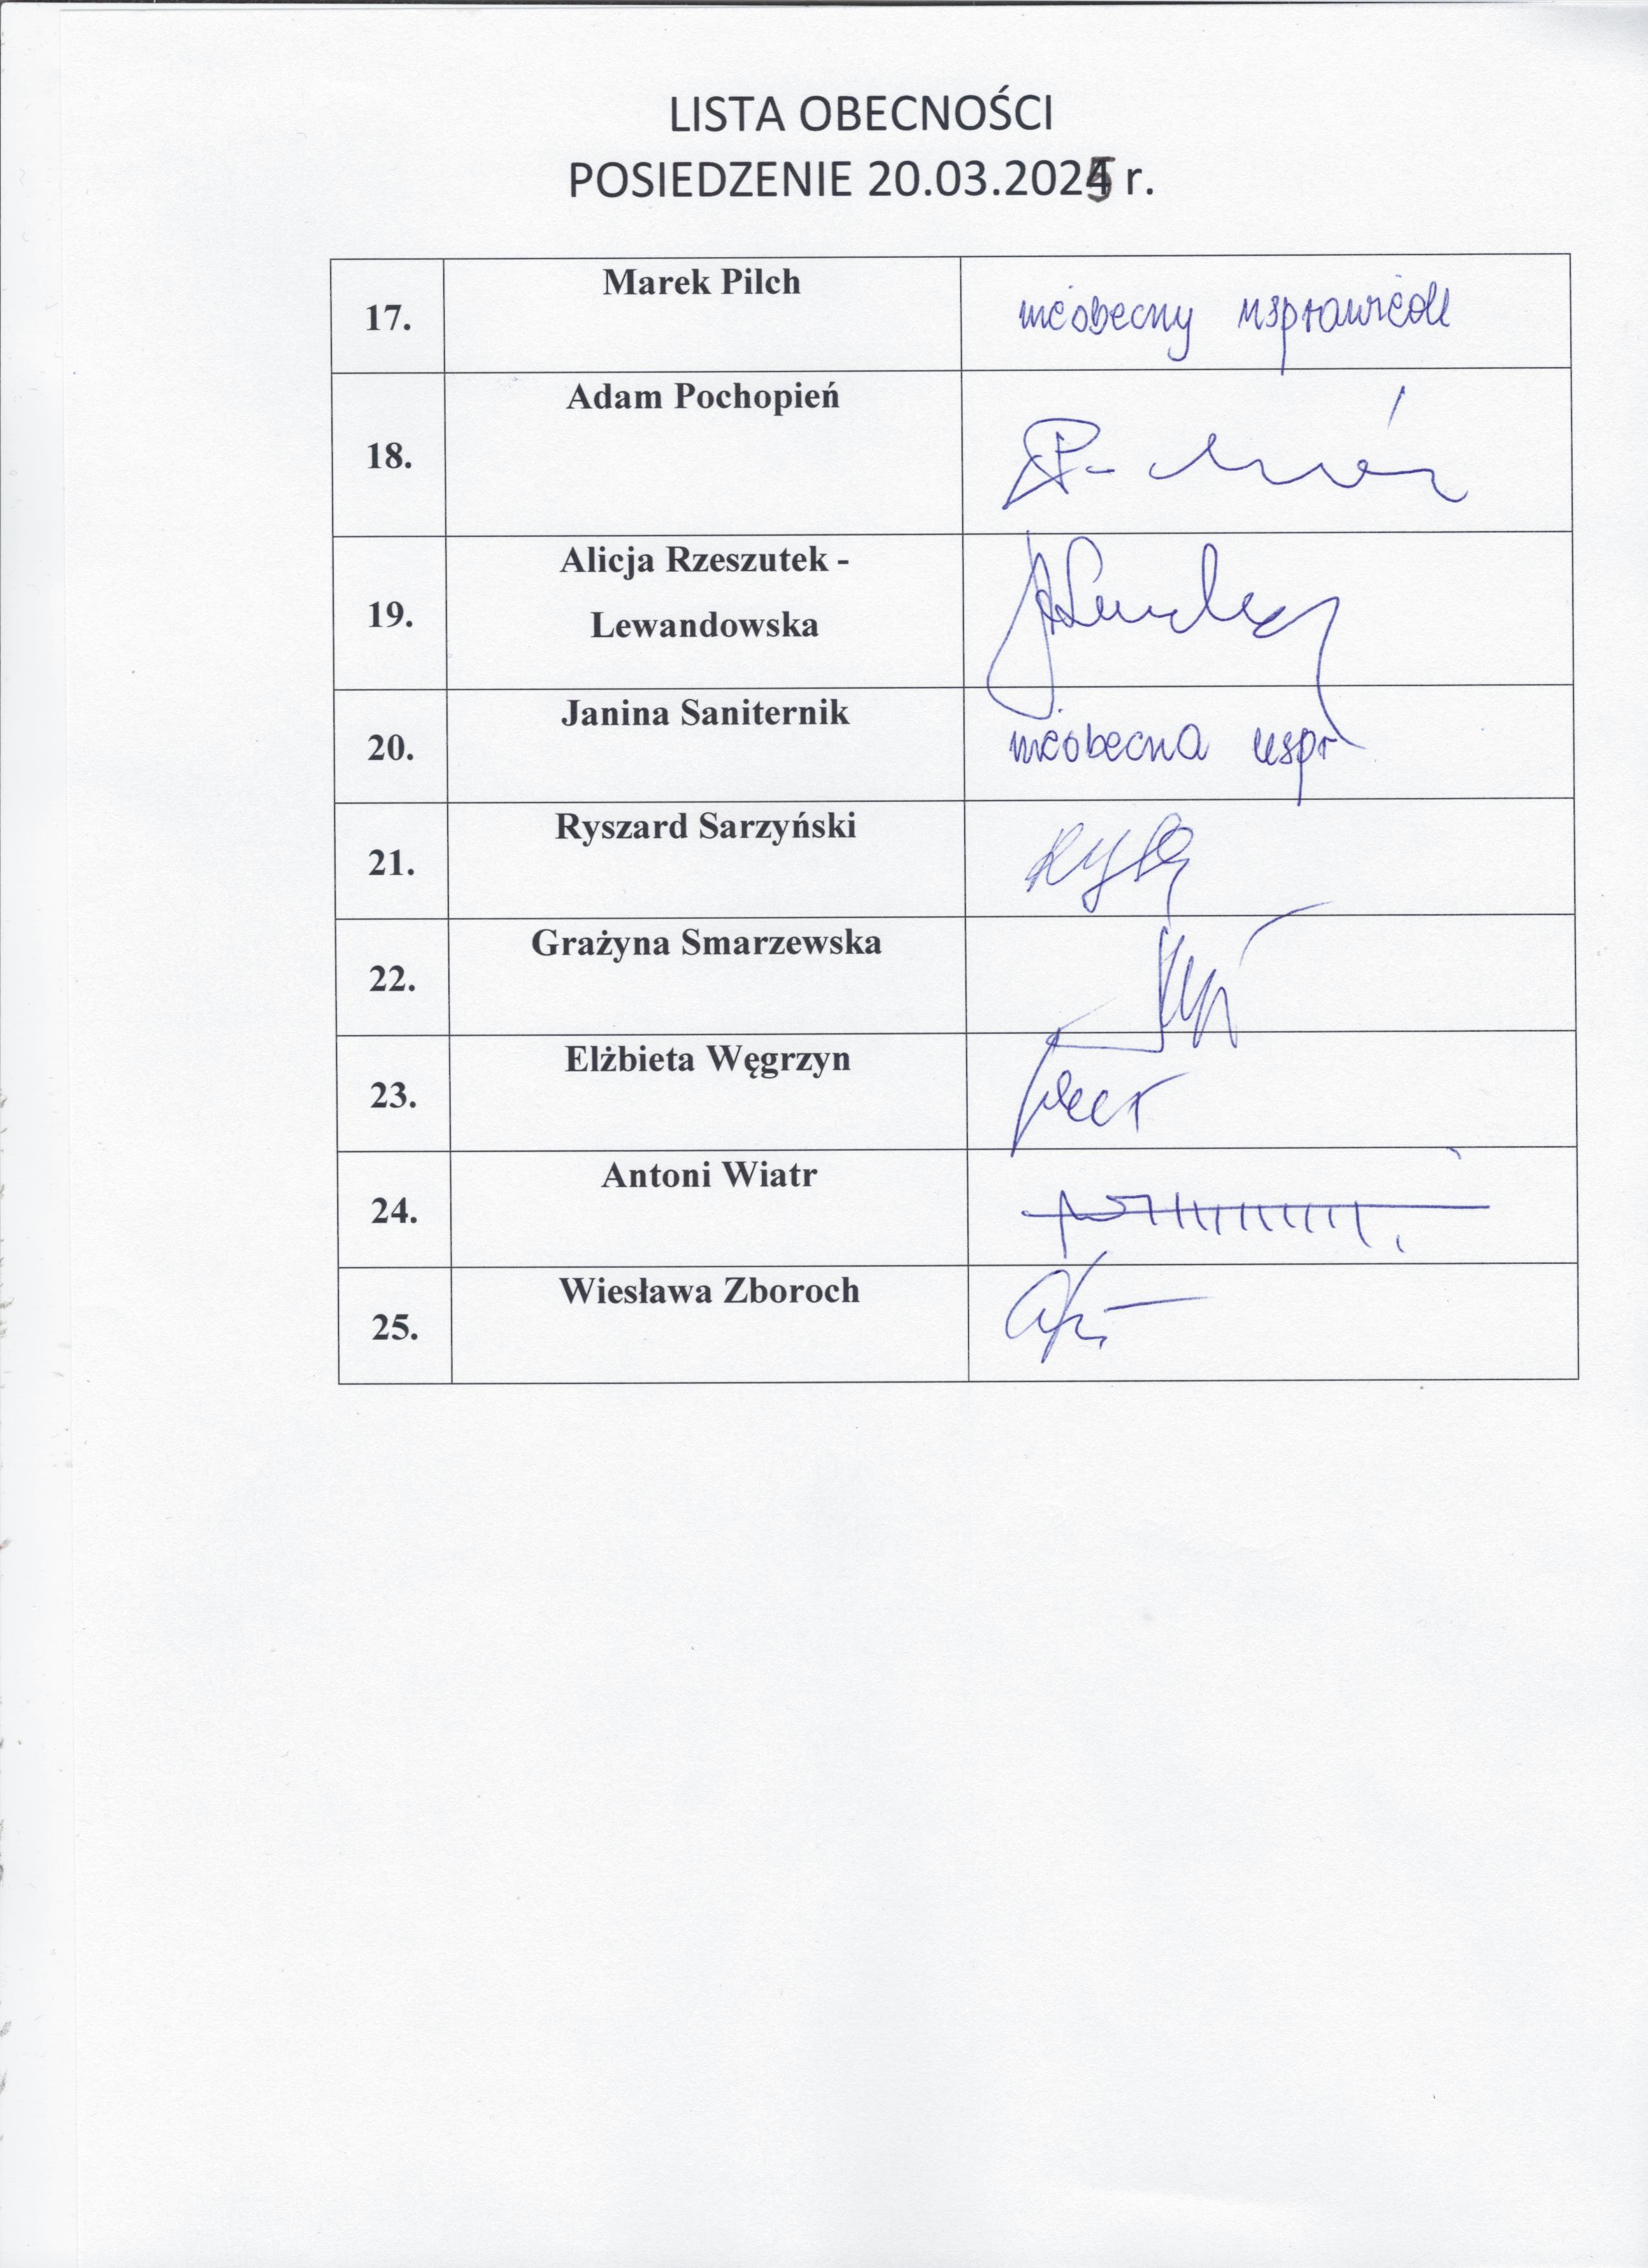 LISTA OBECNOŚCI
POSIEDZENIE 20.03.2025 r.
17. Marek Pilch nieobecny usprawiedl
18. Adam Pochopień
19. Alicja Rzeszutek -
Lewandowska
20. Janina Saniternik nieobecna uspr
21. Ryszard Sarzyński
22. Grażyna Smarzewska
23. Elżbieta Węgrzyn
24. Antoni Wiatr
25. Wiesława Zboroch